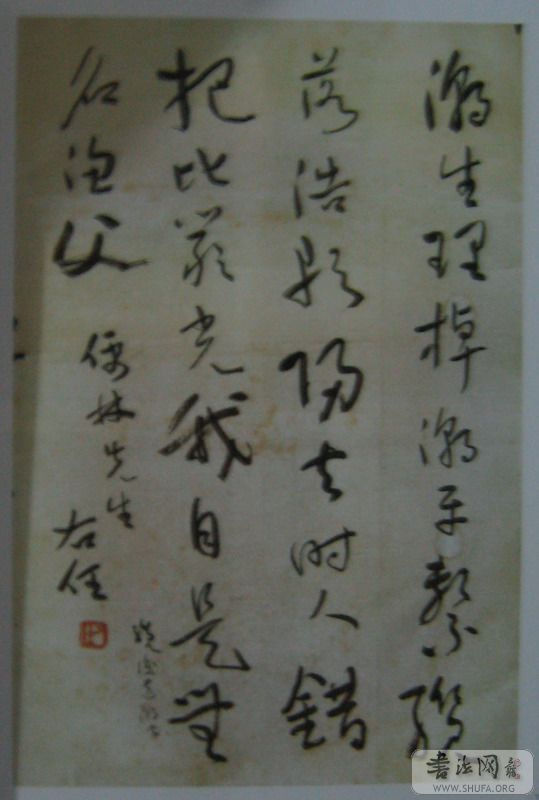 潮生理棹潮平繫纜
落浩歌歸去時人錯
把比嚴光我自是無
名漁父
儒林先生
右任
書法网
WWW.SHUFA.ORG